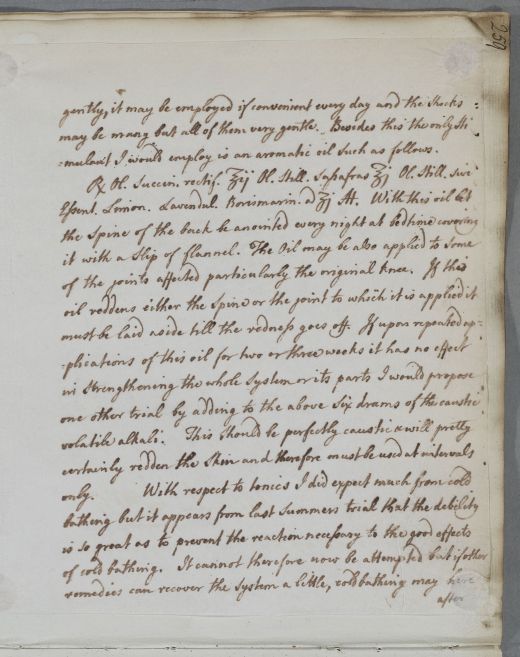 gently, it may be employed if convenient every day and the shocks
may be many but all of them very gentle. Besides this the only sti
=mulant I would employ is an aromatic oil such as follows.
℞ Ol. Succin. rectif. ℥ij Ol. Still. Sassafras ℥j Ol. Still. sive
Essent. Limon. Lavendul. Rorismarin. a ℥j M. With this oil let
the Spine of the back be anointed every night at bedtime covering
it with a Slip of flannel. The Oil may be also applied to some
of the joints affected particularly the original knee. If the
oil reddens either the Spine or the joint to which it is applied it
must be laid aside till the redness goes off. If upon repeated ap=
=plications of this oil for two or three weeks it has no effect
in Strengthening the whole System or its parts I would propose
one other trial by adding to the above Six drams of the caustic
volatile alkali. This should be perfectly caustic & will pretty
certainly redden the Skin and therefore must be used at intervals
only. With respect to tonics I did expect much from cold
bathing but it appears from last Summers trial that the debility
is so great as to prevent the reaction necessary to the good effects
of cold bathing. It cannot therefore now be attempted but if other
remedies can recover the System a little, cold bathing may here
after